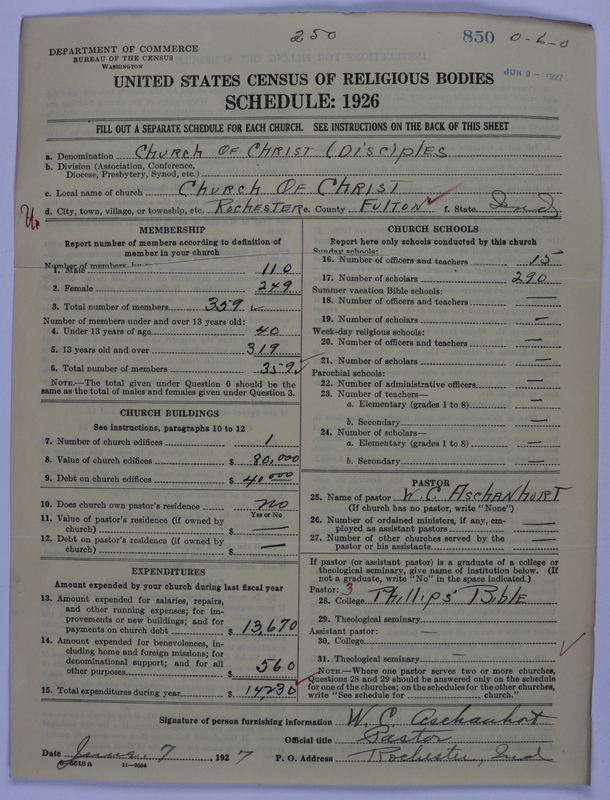 250
850 0-6-0
JUN 9 - 1927
DEPARTMENT OF COMMERCE
BUREAU OF THE CENSUS
WASHINGTON
UNITED STATES CENSUS OF RELIGIOUS BODIES
SCHEDULE: 1926
FILL OUT A SEPARATE SCHEDULE FOR EACH CHURCH. SEE INSTRUCTIONS ON THE BACK OF THIS SHEET
a. Denomination CHURCH OF CHRIST (DISCIPLES
b. Division (Association, Conference, Diocese, Presbytery, Synod, etc.)
c. Local name of church CHURCH OF CHRIST
d. City, town, village, or township, etc. ROCHESTER e. County FULTON f. State Ind
MEMBERSHIP
Report number of members according to definition of
member in your church
Number of members, by
1. Male 110
2. Female 249
3. Total number of members 359
Number of members under and over 13 years old:
4. Under 13 years of age 40
5. 13 years old and over 319
6. Total number of members 359
NOTE.—The total given under Question 6 should be the
same as the total of males and females given under Question 3.
CHURCH BUILDINGS
See instructions, paragraphs 10 to 12
7. Number of church edifices 1
8. Value of church edifices $ 80,000
9. Debt on church edifices $ 40000
10. Does church own pastor's residence no
Yes or No
11. Value of pastor's residence (if owned by
church) $ —
12. Debt on pastor's residence (if owned by
church) $ —
EXPENDITURES
Amount expended by your church during last fiscal year
13. Amount expended for salaries, repairs,
and other running expenses; for im-
provements or new buildings; and for
payments on church debt $ 13,670
14. Amount expended for benevolences, in-
cluding home and foreign missions; for
denominational support; and for all
other purposes $ 560
15. Total expenditures during year $ 14230
CHURCH SCHOOLS
Report here only schools conducted by this church
Sunday schools:
16. Number of officers and teachers 15
17. Number of scholars 290
Summer vacation Bible schools:
18. Number of officers and teachers —
19. Number of scholars —
Week-day religious schools:
20. Number of officers and teachers —
21. Number of scholars —
Parochial schools:
22. Number of administrative officers —
23. Number of teachers—
a. Elementary (grades 1 to 8) —
b. Secondary —
24. Number of scholars—
a. Elementary (grades 1 to 8) —
b. Secondary —
PASTOR
25. Name of pastor W. C. ASCHANHURT
(If church has no pastor, write "None")
26. Number of ordained ministers, if any, em-
ployed as assistant pastors —
27. Number of other churches served by the
pastor or his assistants —
If pastor (or assistant pastor) is a graduate of a college or
theological seminary, give name of institution below. (If
not a graduate, write "No" in the space indicated.)
Pastor: 3
28. College Phillips' Bible
29. Theological seminary
Assistant pastor: —
30. College
31. Theological seminary —
NOTE.—Where one pastor serves two or more churches,
Questions 28 and 29 should be answered only on the schedule
for one of the churches; on the schedules for the other churches,
write "See schedule for church."
Signature of person furnishing information W. C. Aschanhot
Official title Pastor
Date June 7, 1927 P. O. Address Rochester, Ind
8-5518 a 11-9084